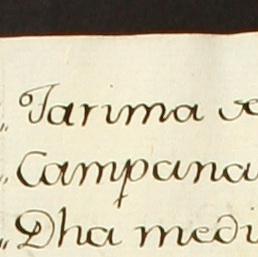 „ Tarima
„ Campana
„ Dha medi